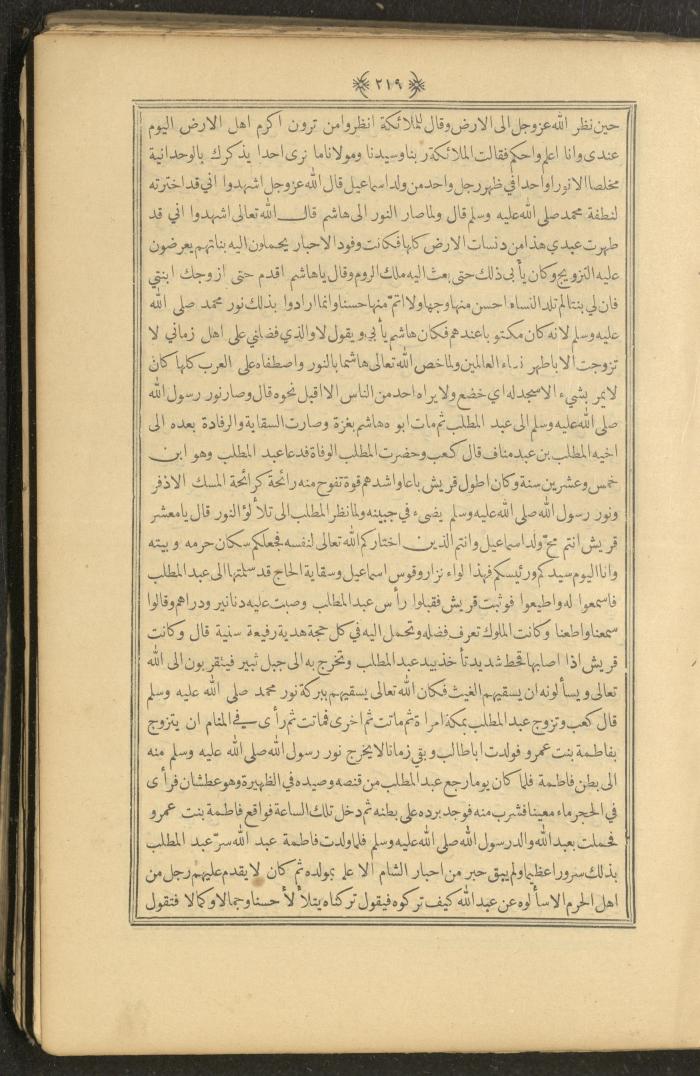 ٢١٩
حين نظر الله عزوجل الى الارض وقال للملائكة انظروا من ترون اكرم اهل الارض اليوم
عندى وانا اعلم واحكم فقالت الملائكة ربنا وسيدنا ومولانا ما نرى احدا يذكرك بالوحدانية
مخلصا الا نورا واحدا في ظهر رجل واحد من ولد اسماعيل قال الله عزوجل اشهدوا انى قد اخترته
لنطفة محمد صلى الله عليه وسلم قال ولما صار النور الى هاشم قال الله تعالى اشهدوا اني قد
طهرت عبدي هذا من دنسات الارض كلها فكانت وفود الاحبار يحملون اليه بناتهم يعرضون
عليه التزويج وكان يأبى ذلك حتى بعث اليه ملك الروم وقال يا هاشم اقدم حتى ازوجك ابنتي
فان لي بنتا لم تلد النساء احسن منها وجها ولا اتم منها حسنا وانما ارادوا بذلك نور محمد صلى الله
عليه وسلم لانه كان مكتوبا عندهم فكان هاشم يأبى ويقول لا والذي فضلني على اهل زماني لا
تزوجت الا باطهر نساء العالمين ولما خص الله تعالى هاشما بالنور واصطفاه على العرب كلها كان
لا يمر بشيء الا سجد له اي خضع ولا يراه احد من الناس الا اقبل نحوه قال وصار نور رسول الله
صلى الله عليه وسلم الى عبد المطلب ثم مات ابوه هاشم بغزة وصارت السقاية والرفادة بعده الى
اخيه المطلب بن عبد مناف قال كعب وحضرت المطلب الوفاة فدعا عبد المطلب وهو ابن
خمس وعشرين سنة وكان اطول قريش باعا واشدهم قوة تفوح منه رائحة كرائحة المسك الاذفر
ونور رسول الله صلى الله عليه وسلم يضىء في جبينه ولما نظر المطلب الى تلألؤ النور قال يا معشر
قريش انتم مخ ولد اسماعيل وانتم الذين اختاركم الله تعالى لنفسه فجعلكم سكان حرمه وبيته
وانا اليوم سيدكم ورئيسكم فهذا لواء نزار وقوس اسماعيل وسقاية الحاج قد سلمتها الى عبد المطلب
فاسمعوا له واطيعوا فوثبت قريش فقبلوا رأس عبد المطلب وصبت عليه دنانير ودراهم وقالوا
سمعنا واطعنا وكانت الملوك تعرف فضله وتحمل اليه في كل حجة هدية رفيعة سنية قال وكانت
قريش اذا اصابها قحط شديد تأخذ بيد عبد المطلب وتخرج به الى جبل ثبير فيتقربون الى الله
تعالى ويسألونه ان يسقيهم الغيث فكان الله تعالى يسقيهم ببركة نور محمد صلى الله عليه وسلم
قال كعب وتزوج عبد المطلب بمكة امراة ثم ماتت ثم اخرى فماتت ثم رأى في المنام ان يتزوج
بفاطمة بنت عمرو فولدت ابا طالب وبقي زمانا لا يخرج نور رسول الله صلى الله عليه وسلم منه
الى بطن فاطمة فلما كان يوما رجع عبد المطلب من قنصه وصيده في الظهيرة وهو عطشان فرأى
في الحجر ماء معينا فشرب منه فوجد برده على بطنه ثم دخل تلك الساعة فواقع فاطمة بنت عمرو
فحملت بعبد الله والد رسول الله صلى الله عليه وسلم فلما ولدت فاطمة عبد الله سرّ عبد المطلب
بذلك سرورا عظيما ولم يبق حبر من احبار الشام الا علم بمولده ثم كان لا يقدم عليهم رجل من
اهل الحرم الا سألوه عن عبد الله كيف تركوه فيقول تركناه يتلألأ حسنا وجمالا وكمالا فتقول